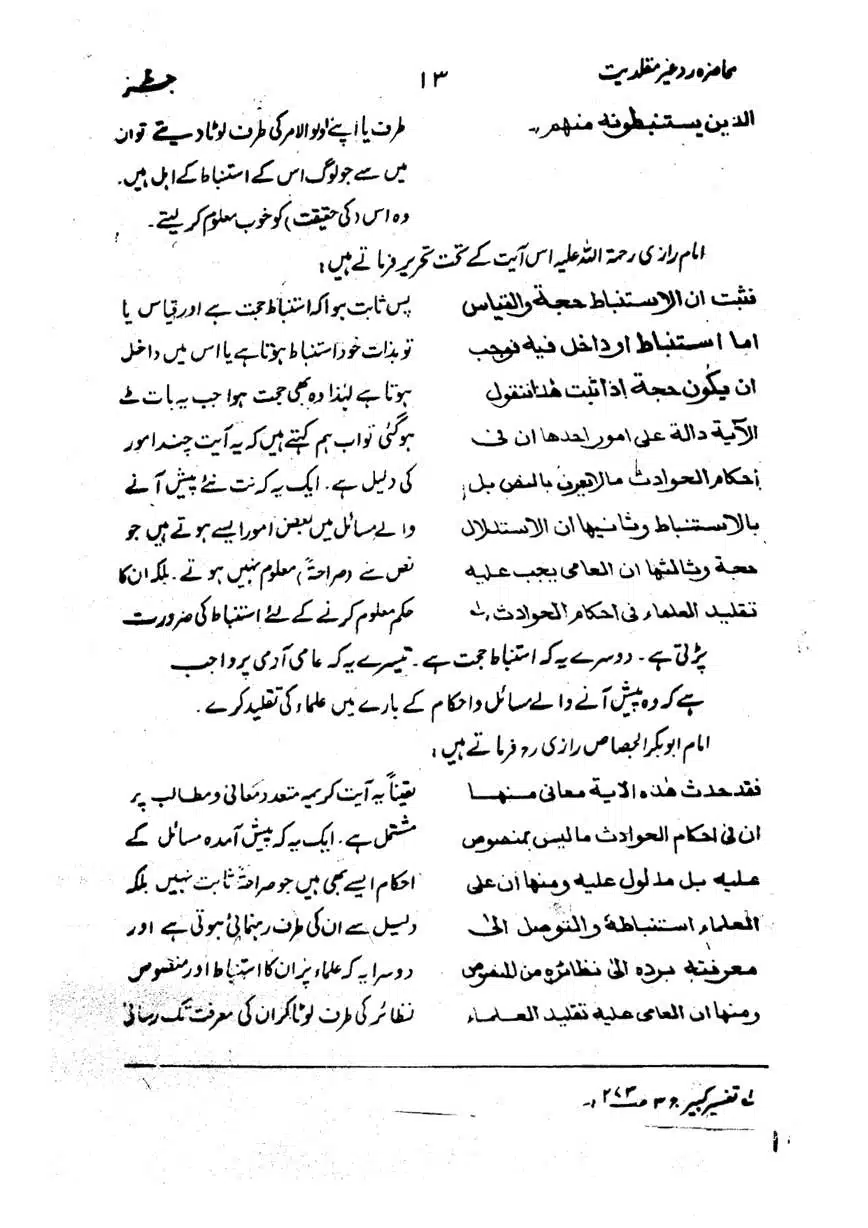 محاضرہ رد غیر مقلدیت ۱۳
الذین یستنبطونه منهم،،
طرف یا اپنے اولو الامر کی طرف لوٹا دیتے تو ان
میں سے جو لوگ اس کے استنباط کے اہل ہیں.
وہ اس (کی حقیقت) کو خوب معلوم کر لیتے۔
امام رازی رحمۃ اللہ علیہ اس آیت کے تحت تحریر فرماتے ہیں:
فثبت ان الاستنباط حجة والقیاس
اما استنباط او داخل فیه فوجب
ان یکون حجة إذا ثبت هذا فنقول
الآیة دالة علی امور احدها ان فی
أحکام الحوادث مالا یعرف بالنص بل
بالاستنباط وثانیها ان الاستدلال
حجة وثالثها ان العامی یجب علیه
تقلید العلماء فی احکام الحوادث، لے
پس ثابت ہوا کہ استنباط حجت ہے اور قیاس یا
تو بذات خود استنباط ہوتا ہے یا اس میں داخل
ہوتا ہے لہٰذا وہ بھی حجت ہوا جب یہ بات طے
ہو گئی تو اب ہم کہتے ہیں کہ یہ آیت چند امور
کی دلیل ہے. ایک یہ کہ نت نئے پیش آنے
والے مسائل میں بعض امور ایسے ہوتے ہیں جو
نص سے (صراحۃً) معلوم نہیں ہوتے. بلکہ ان کا
حکم معلوم کرنے کے لئے استنباط کی ضرورت
پڑتی ہے۔ دوسرے یہ کہ استنباط حجت ہے۔ تیسرے یہ کہ عامی آدمی پر واجب
ہے کہ وہ پیش آنے والے مسائل و احکام کے بارے میں علماء کی تقلید کرے۔
امام ابو بکر الجصاص رازی رہ فرماتے ہیں:
فقد حدث هذه الایة معانی منها
ان فی احکام الحوادث ما لیس بمنصوص
علیه بل مدلول علیه ومنها ان علی
العلماء استنباطه والتوصل الی
معرفته برده الی نظائره من المنصوص
ومنها ان العامی علیه تقلید العلماء
یقیناً یہ آیت کریمہ متعدد معانی و مطالب پر
مشتمل ہے. ایک یہ کہ پیش آمدہ مسائل کے
احکام ایسے بھی ہیں جو صراحۃً ثابت نہیں بلکہ
دلیل سے ان کی طرف رہنمائی ہوتی ہے اور
دوسرا یہ کہ علماء پر ان کا استنباط اور منصوص
نظائر کی طرف لوٹا کر ان کی معرفت تک رسائی
لے تفسیر کبیر ج ۳ ص ۲۷۳ ۔